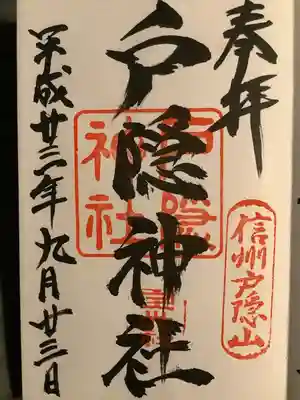 奉拝
信州戸隠山
戸隠神社
戸隠神社
平成廿三年九月廿三日